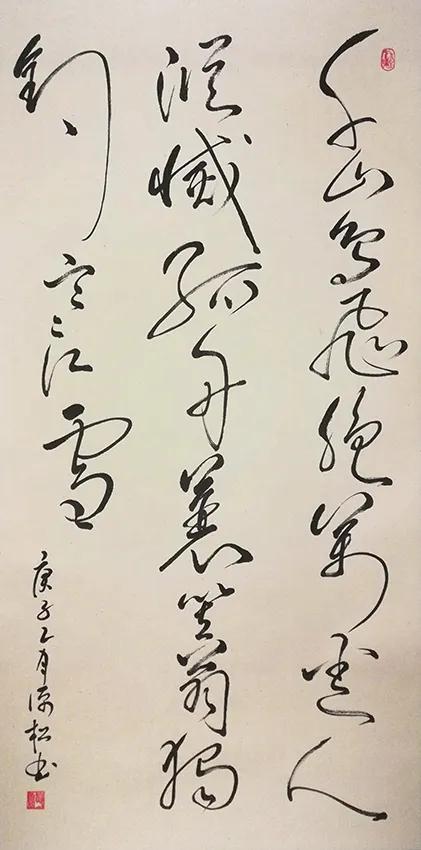 千山鳥飛絕萬逕人
蹤滅孤舟蓑笠翁獨
釣寒江雪
庚子月松书